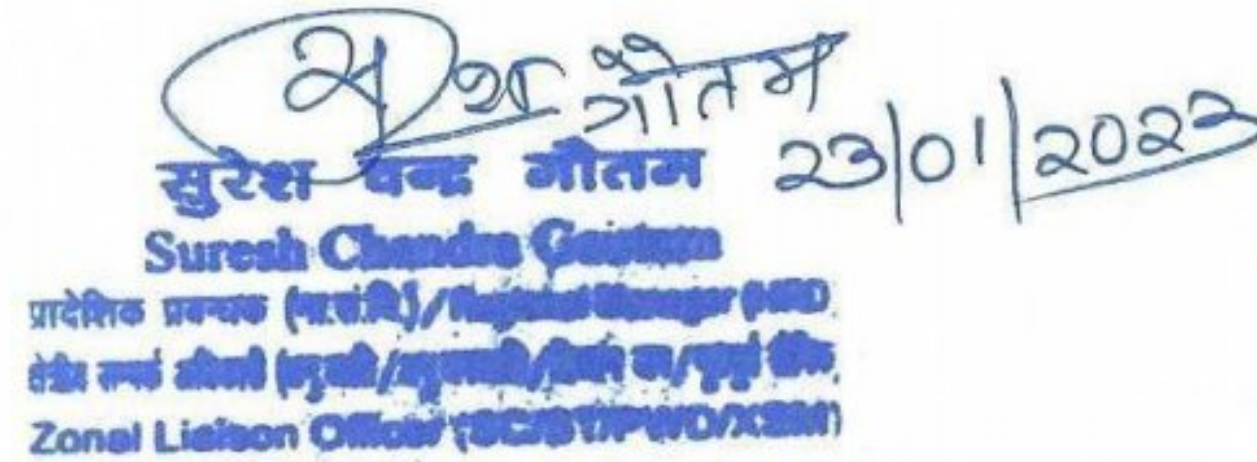 सुरेश गौतम
23/01/2023
सुरेश चन्द्र गौतम
Suresh Chandra Gautam
प्रादेशिक प्रबन्धक (मा.सं.वि.)/Regional Manager (HRD)
(अनु.जाति/अनु.जनजाति/
Zonal Liaison Officer (SC/ST/PWD/XSM)